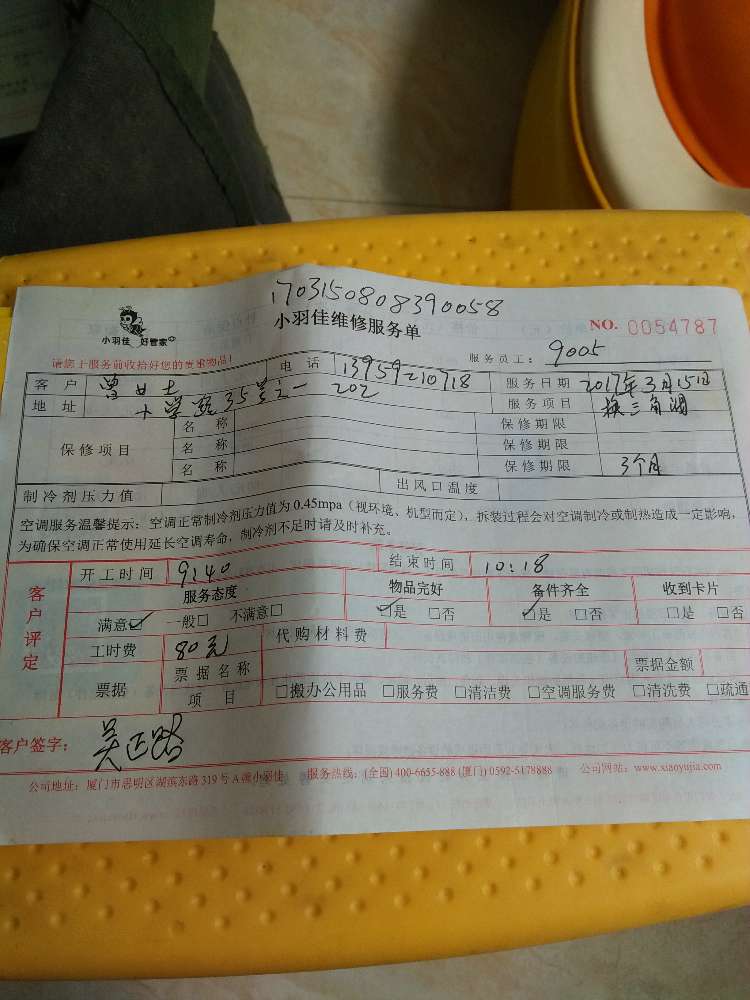 1703150808390058
小羽佳 好管家
小羽佳维修服务单
NO. 0054787
请您于服务前收拾好您的贵重物品!
服务员工: 9005
客户 曾女士 电话 13959210718 服务日期 2017年3月15日
地址 斗学路35号之一 202 服务项目 换三角阀
保修项目 名称 保修期限
名称 保修期限
名称 保修期限 3个月
制冷剂压力值 出风口温度
空调服务温馨提示: 空调正常制冷剂压力值为0.45mpa(视环境、机型而定), 拆装过程会对空调制冷或制热造成一定影响,
为确保空调正常使用延长空调寿命, 制冷剂不足时请及时补充。
客户评定 开工时间 9:40 结束时间 10:18
服务态度 物品完好 备件齐全 收到卡片
满意☑ 一般□ 不满意□ ☑是 □否 ☑是 □否 □是 □否
工时费 80元 代购材料费
票据 票据名称 票据金额
项目 □搬办公用品 □服务费 □清洁费 □空调服务费 □清洗费 □疏通
客户签字: 吴正路
公司地址: 厦门市思明区湖滨东路319号A强小羽佳 服务热线: (全国) 400-6655-888 (厦门) 0592-5178888 公司网站: www.xiaoyujia.com